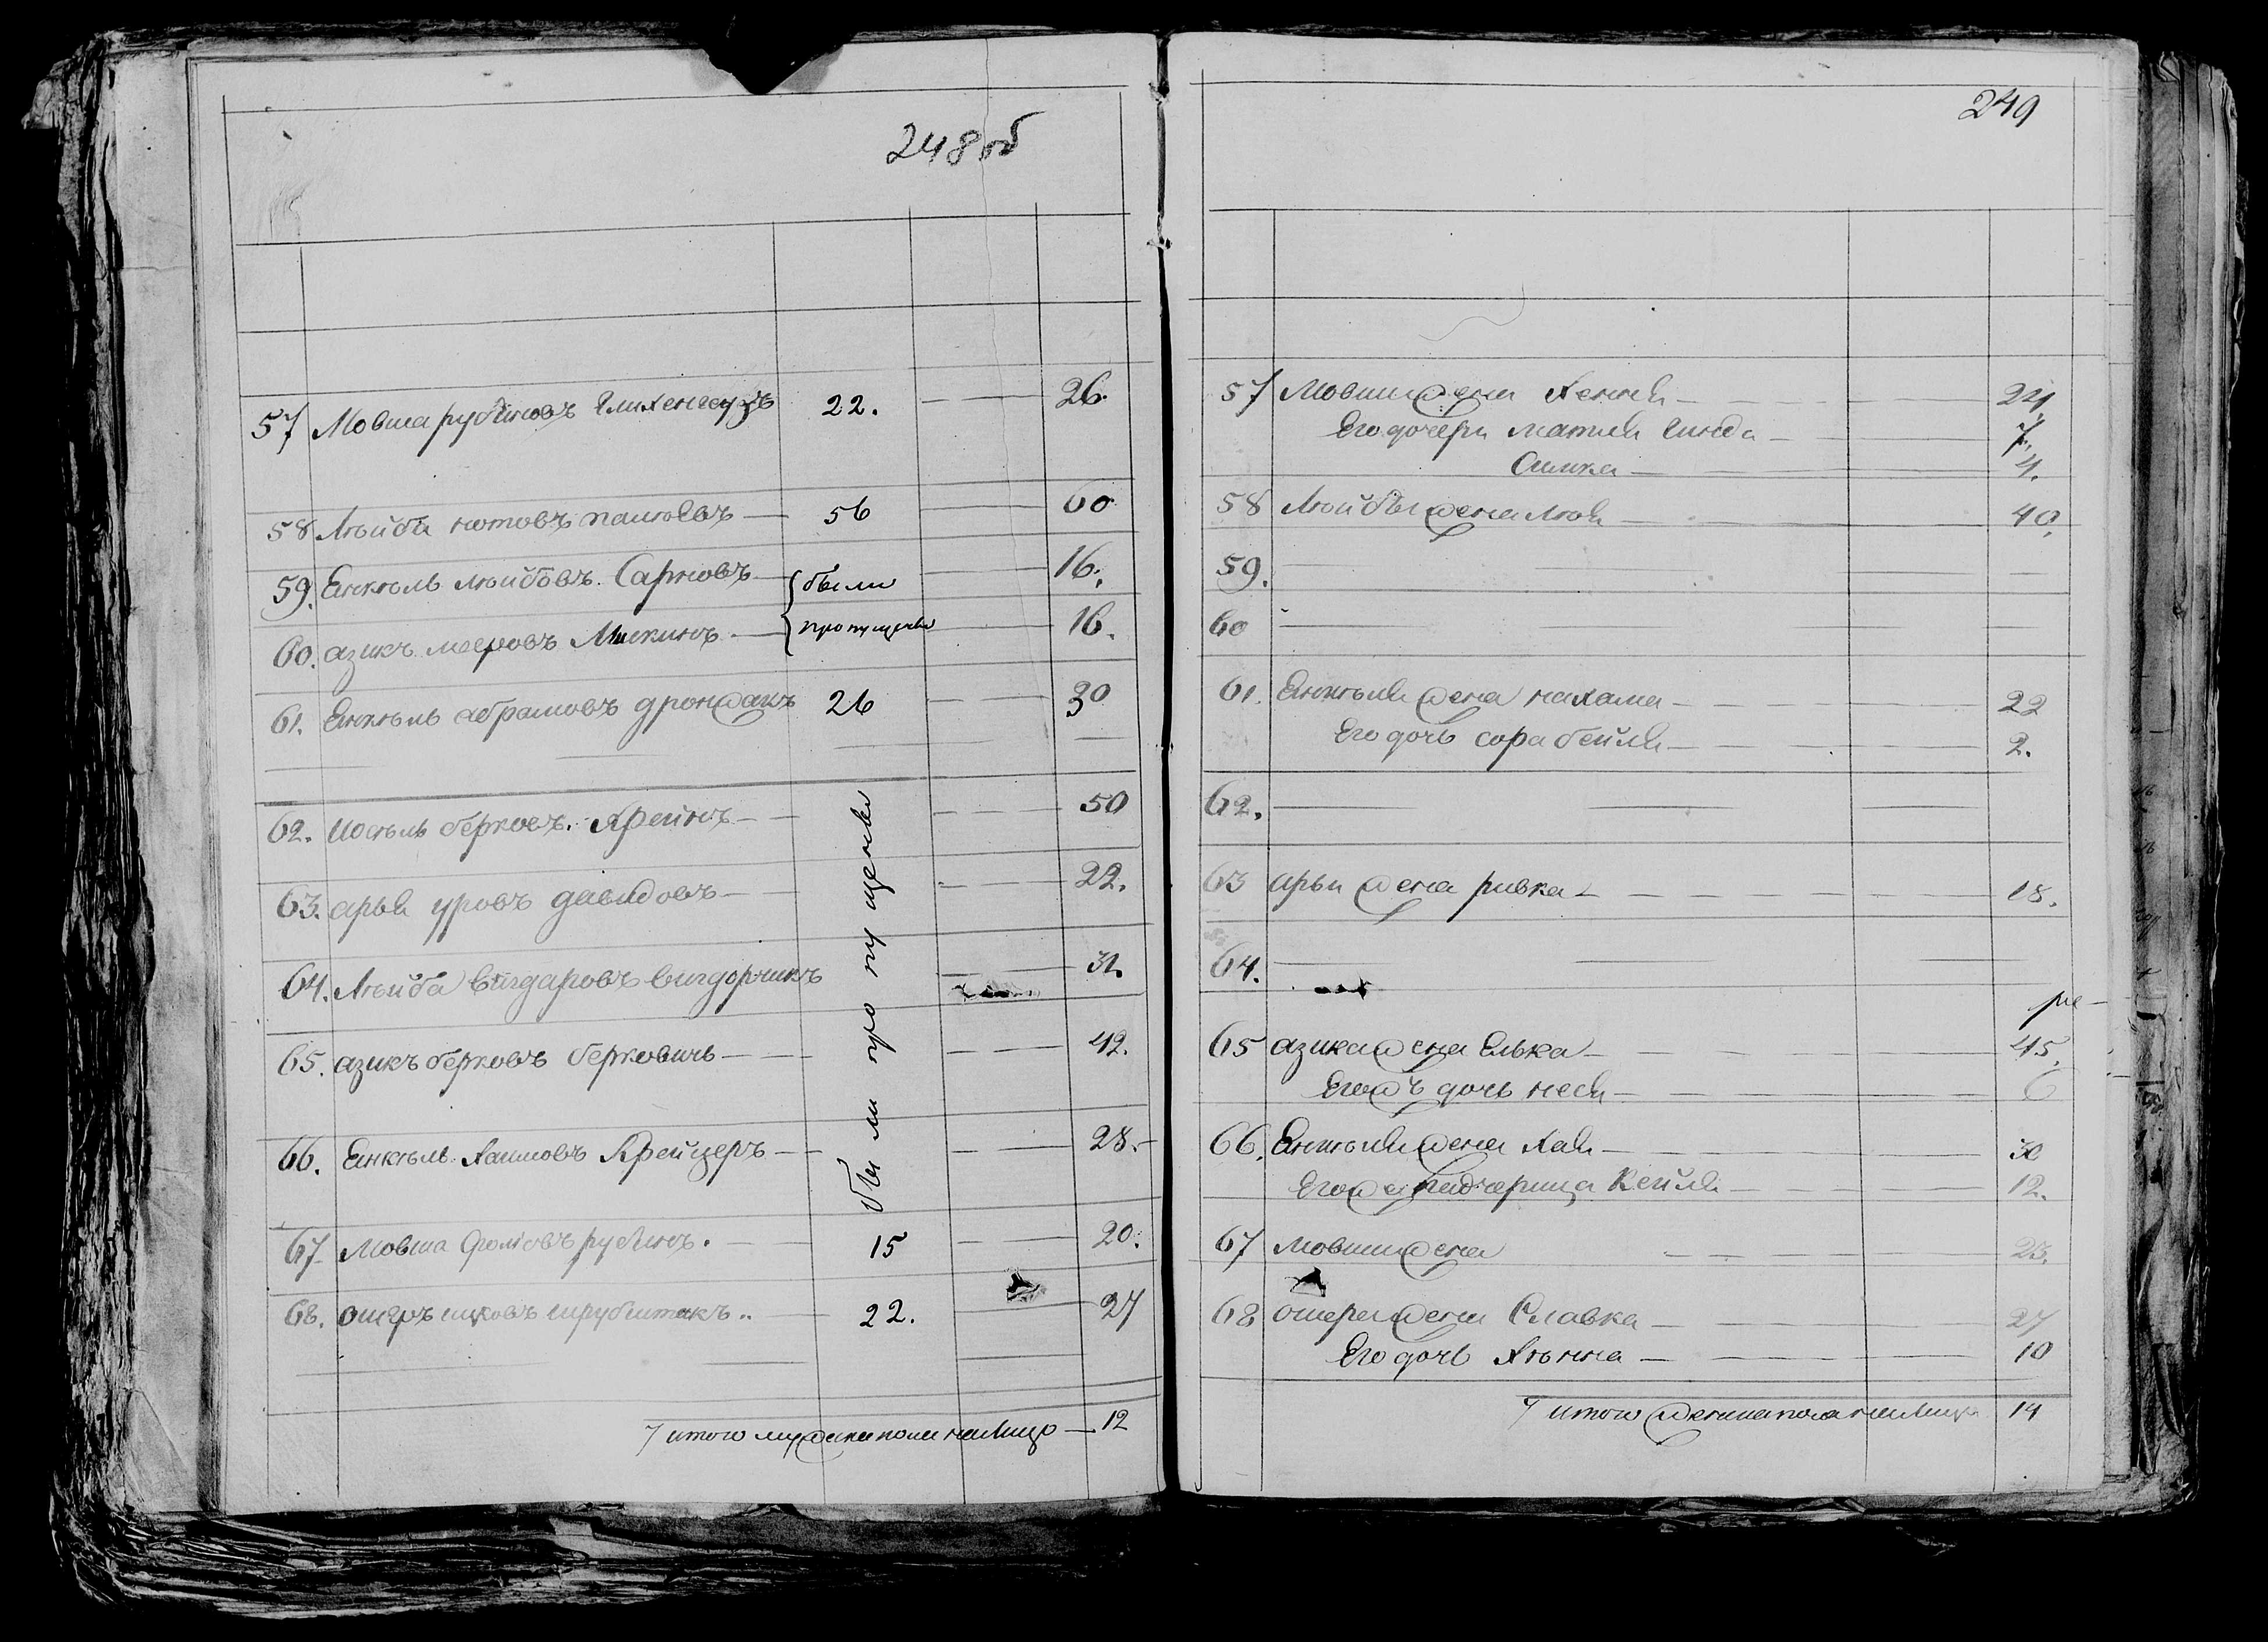 248 об
57 Мовша рубиновъ 22. 26.
58 Лѣйба нотовъ 56 60
59. Енкѣль лѣйбовъ. Сарновъ были 16.
60. азикъ мееровъ Мискинъ пропущены 16.
61. Енкѣль абрамовъ дрондакъ 26 30
62. Иосѣль берковъ. Крейнъ 50
63. арья уровъ давидовъ 22.
64. Лѣйба вигдаровъ вигдорчикъ 31.
65. азикъ берковъ берковичь 42.
66. Енкѣль Хаимовъ Крейцеръ 28.
были пропущены
67 Мовша рубинъ. 15 20.
68. ошеръ ицковъ 22. 27
итого мужска пола налицо 12
249
57 Мовши жена Хення 24.
Его дочери матля Гинда 7.
Симка 4.
58 Лѣйбы жена 40.
59.
60
61. Енкѣля жена нахама 22
Его дочь сора бейля 2.
62.
63 арьи жена ривка 18.
64.
65 азика жена Элька 45.
Его дочь неся 6
66. Енкѣля жена Хая 30
падчерица Кейля 12.
67 мовши жена 23.
68 ошера жена Славка 27
Его дочь Хѣнна 10
итого женска пола налицо 14